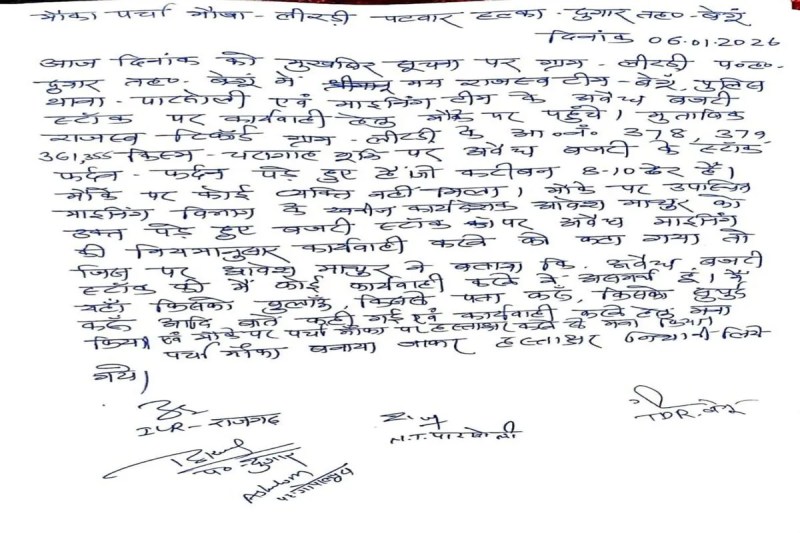 मौका पर्चा मौखा - लीरडी पटवार हल्का - दुगार तह० - बेगूं
दिनांक 06.01.2026
आज दिनांक को मुखबिर सूचना पर ग्राम - लीरडी प०ह०
दुगार तह०- बेगूं में मय राजस्व टीम - बेगूं, पुलिस
थाना - पारसोली एवं माइनिंग टीम के अवैध बजरी
स्टॉक पर कार्यवाही हेतु मौके पर पहुंचे। मुताबिक
राजस्व रिकॉर्ड ग्राम - लीरडी के आ०नं० 378, 379,
361, 355 किस्म - चरागाह भूमि पर अवैध बजरी के स्टॉक
फर्दन - फर्दन पड़े हुए हैं जो करीबन 8-10 ढेर हैं।
मौके पर कोई व्यक्ति नहीं मिला। मौके पर उपस्थित
माइनिंग विभाग के खनीज कार्यदेशक को
उक्त पड़े हुए बजरी स्टॉक पर अवैध माइनिंग
की नियमानुसार कार्यवाही करने को कहा गया तो
जिस पर ने बताया कि अवैध बजरी
स्टॉक की मैं कोई कार्यवाही करने में असमर्थ हूं। मैं
यहाँ किसको बुलाऊँ, किससे पता करूँ, किसको सुपुर्द
करूँ आदि बातें कही गई एवं कार्यवाही करने हेतु मना
किया एवं मौके पर पर्चा मौका पर हस्ताक्षर करने से मना किया।
पर्चा मौका बनाया जाकर हस्ताक्षर लिये
गये।
ILR - राजगढ़
N.T. पारसोली
TDR. बेगूं
प० दुगार